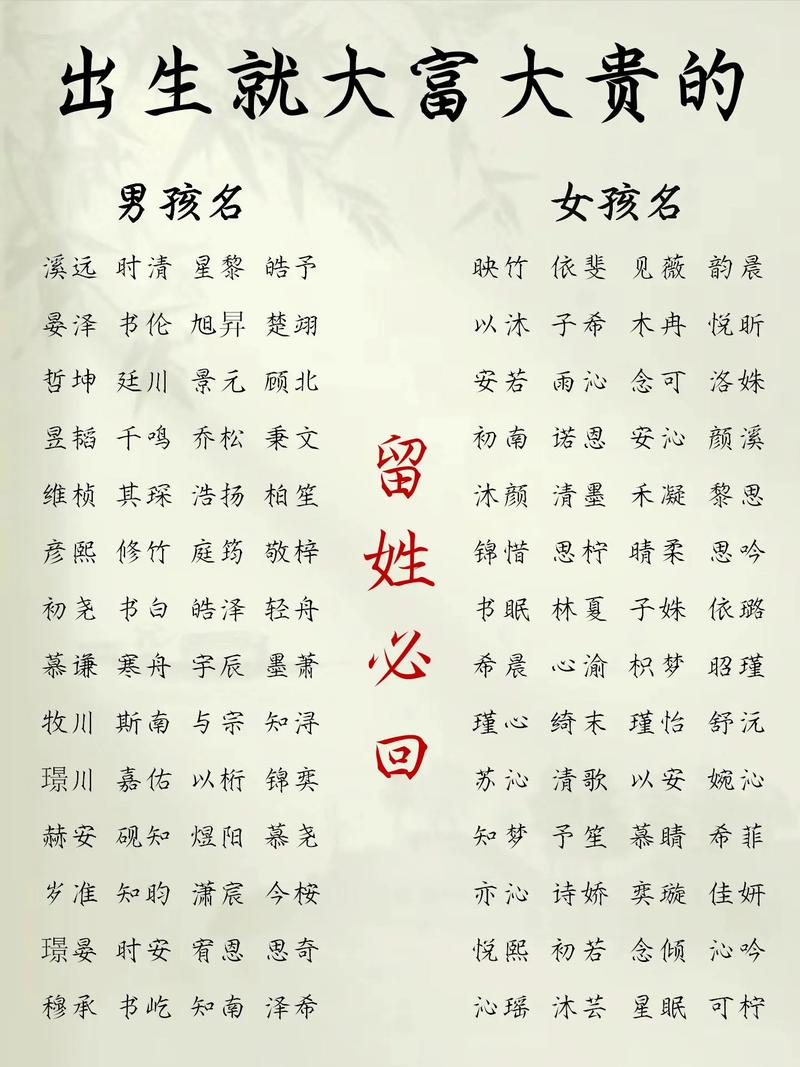 出生就大富大贵的
男孩名
溪远 时清 星黎 皓予
晏泽 书伦 旭昇 楚翊
哲坤 廷川 景元 顾北
昱韬 千鸣 乔松 秉文
维桢 其琛 浩扬 柏笙
彦熙 修竹 庭筠 敬梓
初尧 书白 皓泽 轻舟
慕谦 寒舟 宇辰 墨萧
牧川 斯南 与宗 知浔
璟川 嘉佑 以桁 锦奕
赫安 砚知 煜阳 慕尧
岁准 知昀 潇宸 今桉
璟晏 时安 宥恩 思奇
穆承 书屹 知南 泽希
留姓必回
女孩名
映竹 依斐 见薇 韵晨
以沐 子希 木冉 悦昕
安若 雨沁 念可 洛姝
初南 诺恩 安沁 颜溪
沐颜 清墨 禾凝 黎思
锦惜 思柠 晴柔 思吟
书眠 林夏 子姝 依璐
希晨 心渝 枳梦 昭瑾
瑾心 绮末 瑾怡 舒沅
苏沁 清歌 以安 婉沁
知梦 予笙 慕晴 希菲
亦沁 诗娇 奕璇 佳妍
悦熙 初若 念倾 沁吟
沁瑶 沐芸 星眠 可柠